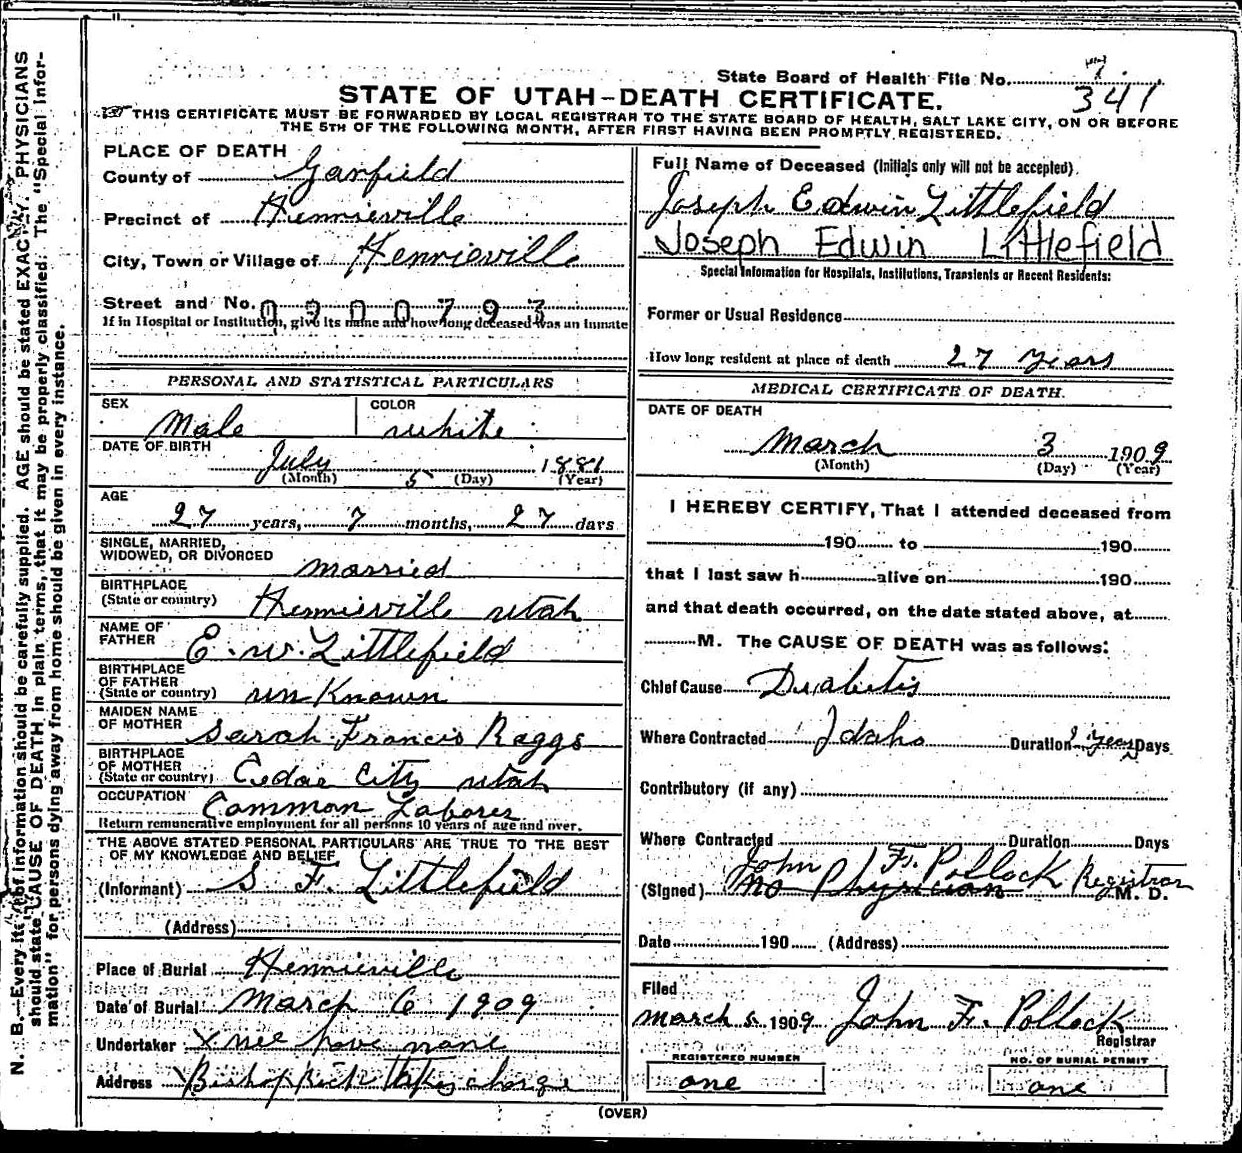 State Board of Health File No. 341
STATE OF UTAH-DEATH CERTIFICATE.
THIS CERTIFICATE MUST BE FORWARDED BY LOCAL REGISTRAR TO THE STATE BOARD OF HEALTH, SALT LAKE CITY, ON OR BEFORE
THE 5TH OF THE FOLLOWING MONTH, AFTER FIRST HAVING BEEN PROMPTLY REGISTERED.
PLACE OF DEATH
County of Garfield
Precinct of Hennieville
City, Town or Village of Hennieville
Street and No. 0900793
If in Hospital or Institution, give its name and how long deceased was an inmate
PERSONAL AND STATISTICAL PARTICULARS
SEX Male
COLOR white
DATE OF BIRTH
July 5 1881
(Month) (Day) (Year)
AGE
27 years, 7 months, 27 days
SINGLE, MARRIED,
WIDOWED, OR DIVORCED married
BIRTHPLACE
(State or country) Hennieville utah
NAME OF
FATHER E. W. Littlefield
BIRTHPLACE
OF FATHER
(State or country) un Known
MAIDEN NAME
OF MOTHER Sarah Francis Raggs
BIRTHPLACE
OF MOTHER
(State or country) Cedar City utah
OCCUPATION Common Laborer
Return remunerative employment for all persons 10 years of age and over.
THE ABOVE STATED PERSONAL PARTICULARS ARE TRUE TO THE BEST
OF MY KNOWLEDGE AND BELIEF
(Informant) S F. Littlefield
(Address)
Place of Burial Hennieville
Date of Burial March 6 1909
Undertaker X we have none
Address X Bishoppick charge
Full Name of Deceased (Initials only will not be accepted).
Joseph Edwin Littlefield
Joseph Edwin Littlefield
Special Information for Hospitals, Institutions, Transients or Recent Residents:
Former or Usual Residence
How long resident at place of death 27 years
MEDICAL CERTIFICATE OF DEATH.
DATE OF DEATH
March 3 1909
(Month) (Day) (Year)
I HEREBY CERTIFY, That I attended deceased from
190 to 190
that I last saw h alive on 190
and that death occurred, on the date stated above, at
M. The CAUSE OF DEATH was as follows:
Chief Cause Diabetis
Where Contracted Idaho Duration years Days
Contributory (if any)
Where Contracted Duration Days
John F. Pollock Registrar
(Signed) no Physician M. D.
Date 190 (Address)
Filed
March 1909 John F. Pollock
Registrar
REGISTERED NUMBER
one
NO. OF BURIAL PERMIT
one
(OVER)
N. B.—Every item of information should be carefully supplied. AGE should be stated EXACTLY. PHYSICIANS
should state CAUSE OF DEATH in plain terms, that it may be properly classified. The "Special Infor-
mation" for persons dying away from home should be given in every instance.